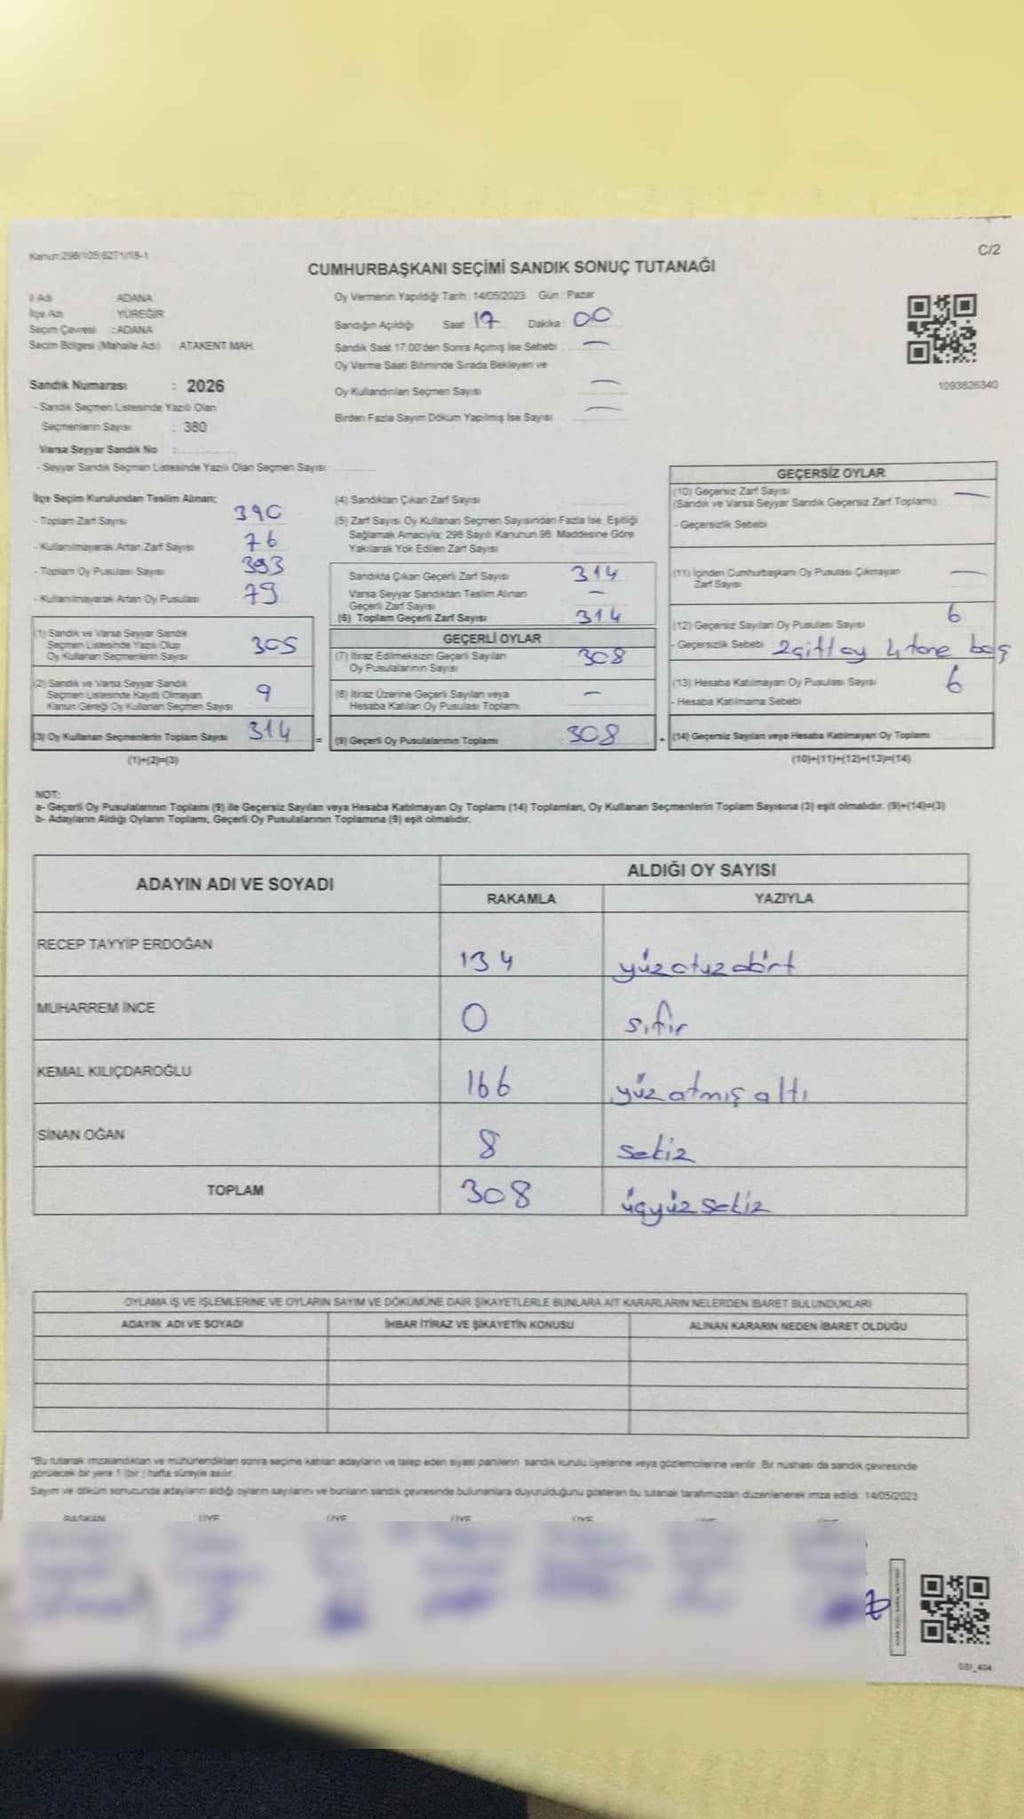 Kanun:298/105;6271/18-1
C/2
CUMHURBAŞKANI SEÇİMİ SANDIK SONUÇ TUTANAĞI
İl Adı ADANA
İlçe Adı YÜREĞİR
Seçim Çevresi : ADANA
Seçim Bölgesi (Mahalle Adı) ATAKENT MAH.
Sandık Numarası : 2026
- Sandık Seçmen Listesinde Yazılı Olan
Seçmenlerin Sayısı : 380
Varsa Seyyar Sandık No :
- Seyyar Sandık Seçmen Listesinde Yazılı Olan Seçmen Sayısı
Oy Vermenin Yapıldığı Tarih : 14/05/2023 Gün : Pazar
Sandığın Açıldığı Saat 17 Dakika 00
Sandık Saat 17:00'den Sonra Açılmış İse Sebebi —
Oy Verme Saati Bitiminde Sırada Bekleyen ve
Oy Kullandırılan Seçmen Sayısı —
Birden Fazla Sayım Döküm Yapılmış İse Sayısı —
1093826340
İlçe Seçim Kurulundan Teslim Alınan;
- Toplam Zarf Sayısı 390
- Kullanılmayarak Artan Zarf Sayısı 76
- Toplam Oy Pusulası Sayısı 393
- Kullanılmayarak Artan Oy Pusulası 79
(1) Sandık ve Varsa Seyyar Sandık
Seçmen Listesinde Yazılı Olup
Oy Kullanan Seçmenlerin Sayısı 305
(2) Sandık ve Varsa Seyyar Sandık
Seçmen Listesinde Kayıtlı Olmayan
Kanun Gereği Oy Kullanan Seçmen Sayısı 9
(3) Oy Kullanan Seçmenlerin Toplam Sayısı 314 =
(1)+(2)=(3)
(4) Sandıktan Çıkan Zarf Sayısı
(5) Zarf Sayısı Oy Kullanan Seçmen Sayısından Fazla İse, Eşitliği
Sağlamak Amacıyla; 298 Sayılı Kanunun 98. Maddesine Göre
Yakılarak Yok Edilen Zarf Sayısı
Sandıkta Çıkan Geçerli Zarf Sayısı 314
Varsa Seyyar Sandıktan Teslim Alınan
Geçerli Zarf Sayısı —
(6) Toplam Geçerli Zarf Sayısı 314
GEÇERLİ OYLAR
(7) İtiraz Edilmeksizin Geçerli Sayılan
Oy Pusulalarının Sayısı 308
(8) İtiraz Üzerine Geçerli Sayılan veya
Hesaba Katılan Oy Pusulası Toplamı —
(9) Geçerli Oy Pusulalarının Toplamı 308 +
GEÇERSİZ OYLAR
(10) Geçersiz Zarf Sayısı —
(Sandık ve Varsa Seyyar Sandık Geçersiz Zarf Toplamı)
- Geçersizlik Sebebi
(11) İçinden Cumhurbaşkanı Oy Pusulası Çıkmayan
Zarf Sayısı —
(12) Geçersiz Sayılan Oy Pusulası Sayısı 6
- Geçersizlik Sebebi 2 çift oy 4 tane boş
(13) Hesaba Katılmayan Oy Pusulası Sayısı 6
- Hesaba Katılmama Sebebi
(14) Geçersiz Sayılan veya Hesaba Katılmayan Oy Toplamı
(10)+(11)+(12)+(13)=(14)
NOT:
a- Geçerli Oy Pusulalarının Toplamı (9) ile Geçersiz Sayılan veya Hesaba Katılmayan Oy Toplamı (14) Toplamları, Oy Kullanan Seçmenlerin Toplam Sayısına (3) eşit olmalıdır. (9)+(14)=(3)
b- Adayların Aldığı Oyların Toplamı, Geçerli Oy Pusulalarının Toplamına (9) eşit olmalıdır.
ADAYIN ADI VE SOYADI
ALDIĞI OY SAYISI
RAKAMLA YAZIYLA
RECEP TAYYİP ERDOĞAN 134 yüz otuz dört
MUHARREM İNCE 0 sıfır
KEMAL KILIÇDAROĞLU 166 yüz atmış altı
SİNAN OĞAN 8 sekiz
TOPLAM 308 üçyüz sekiz
OYLAMA İŞ VE İŞLEMLERİNE VE OYLARIN SAYIM VE DÖKÜMÜNE DAİR ŞİKAYETLERLE BUNLARA AİT KARARLARIN NELERDEN İBARET BULUNDUKLARI
ADAYIN ADI VE SOYADI İHBAR İTİRAZ VE ŞİKAYETİN KONUSU ALINAN KARARIN NEDEN İBARET OLDUĞU
*Bu tutanak imzalandıktan ve mühürlendikten sonra seçime katılan adayların ve talep eden siyasi partilerin sandık kurulu üyelerine veya gözlemcilerine verilir. Bir nüshası da sandık çevresinde
görülecek bir yere 1 (bir ) hafta süreyle asılır.
Sayım ve döküm sonucunda adayların aldığı oyların sayılarını ve bunların sandık çevresinde bulunanlara duyurulduğunu gösteren bu tutanak tarafımızdan düzenlenerek imza edildi. 14/05/2023
BAŞKAN ÜYE ÜYE ÜYE ÜYE ÜYE ÜYE